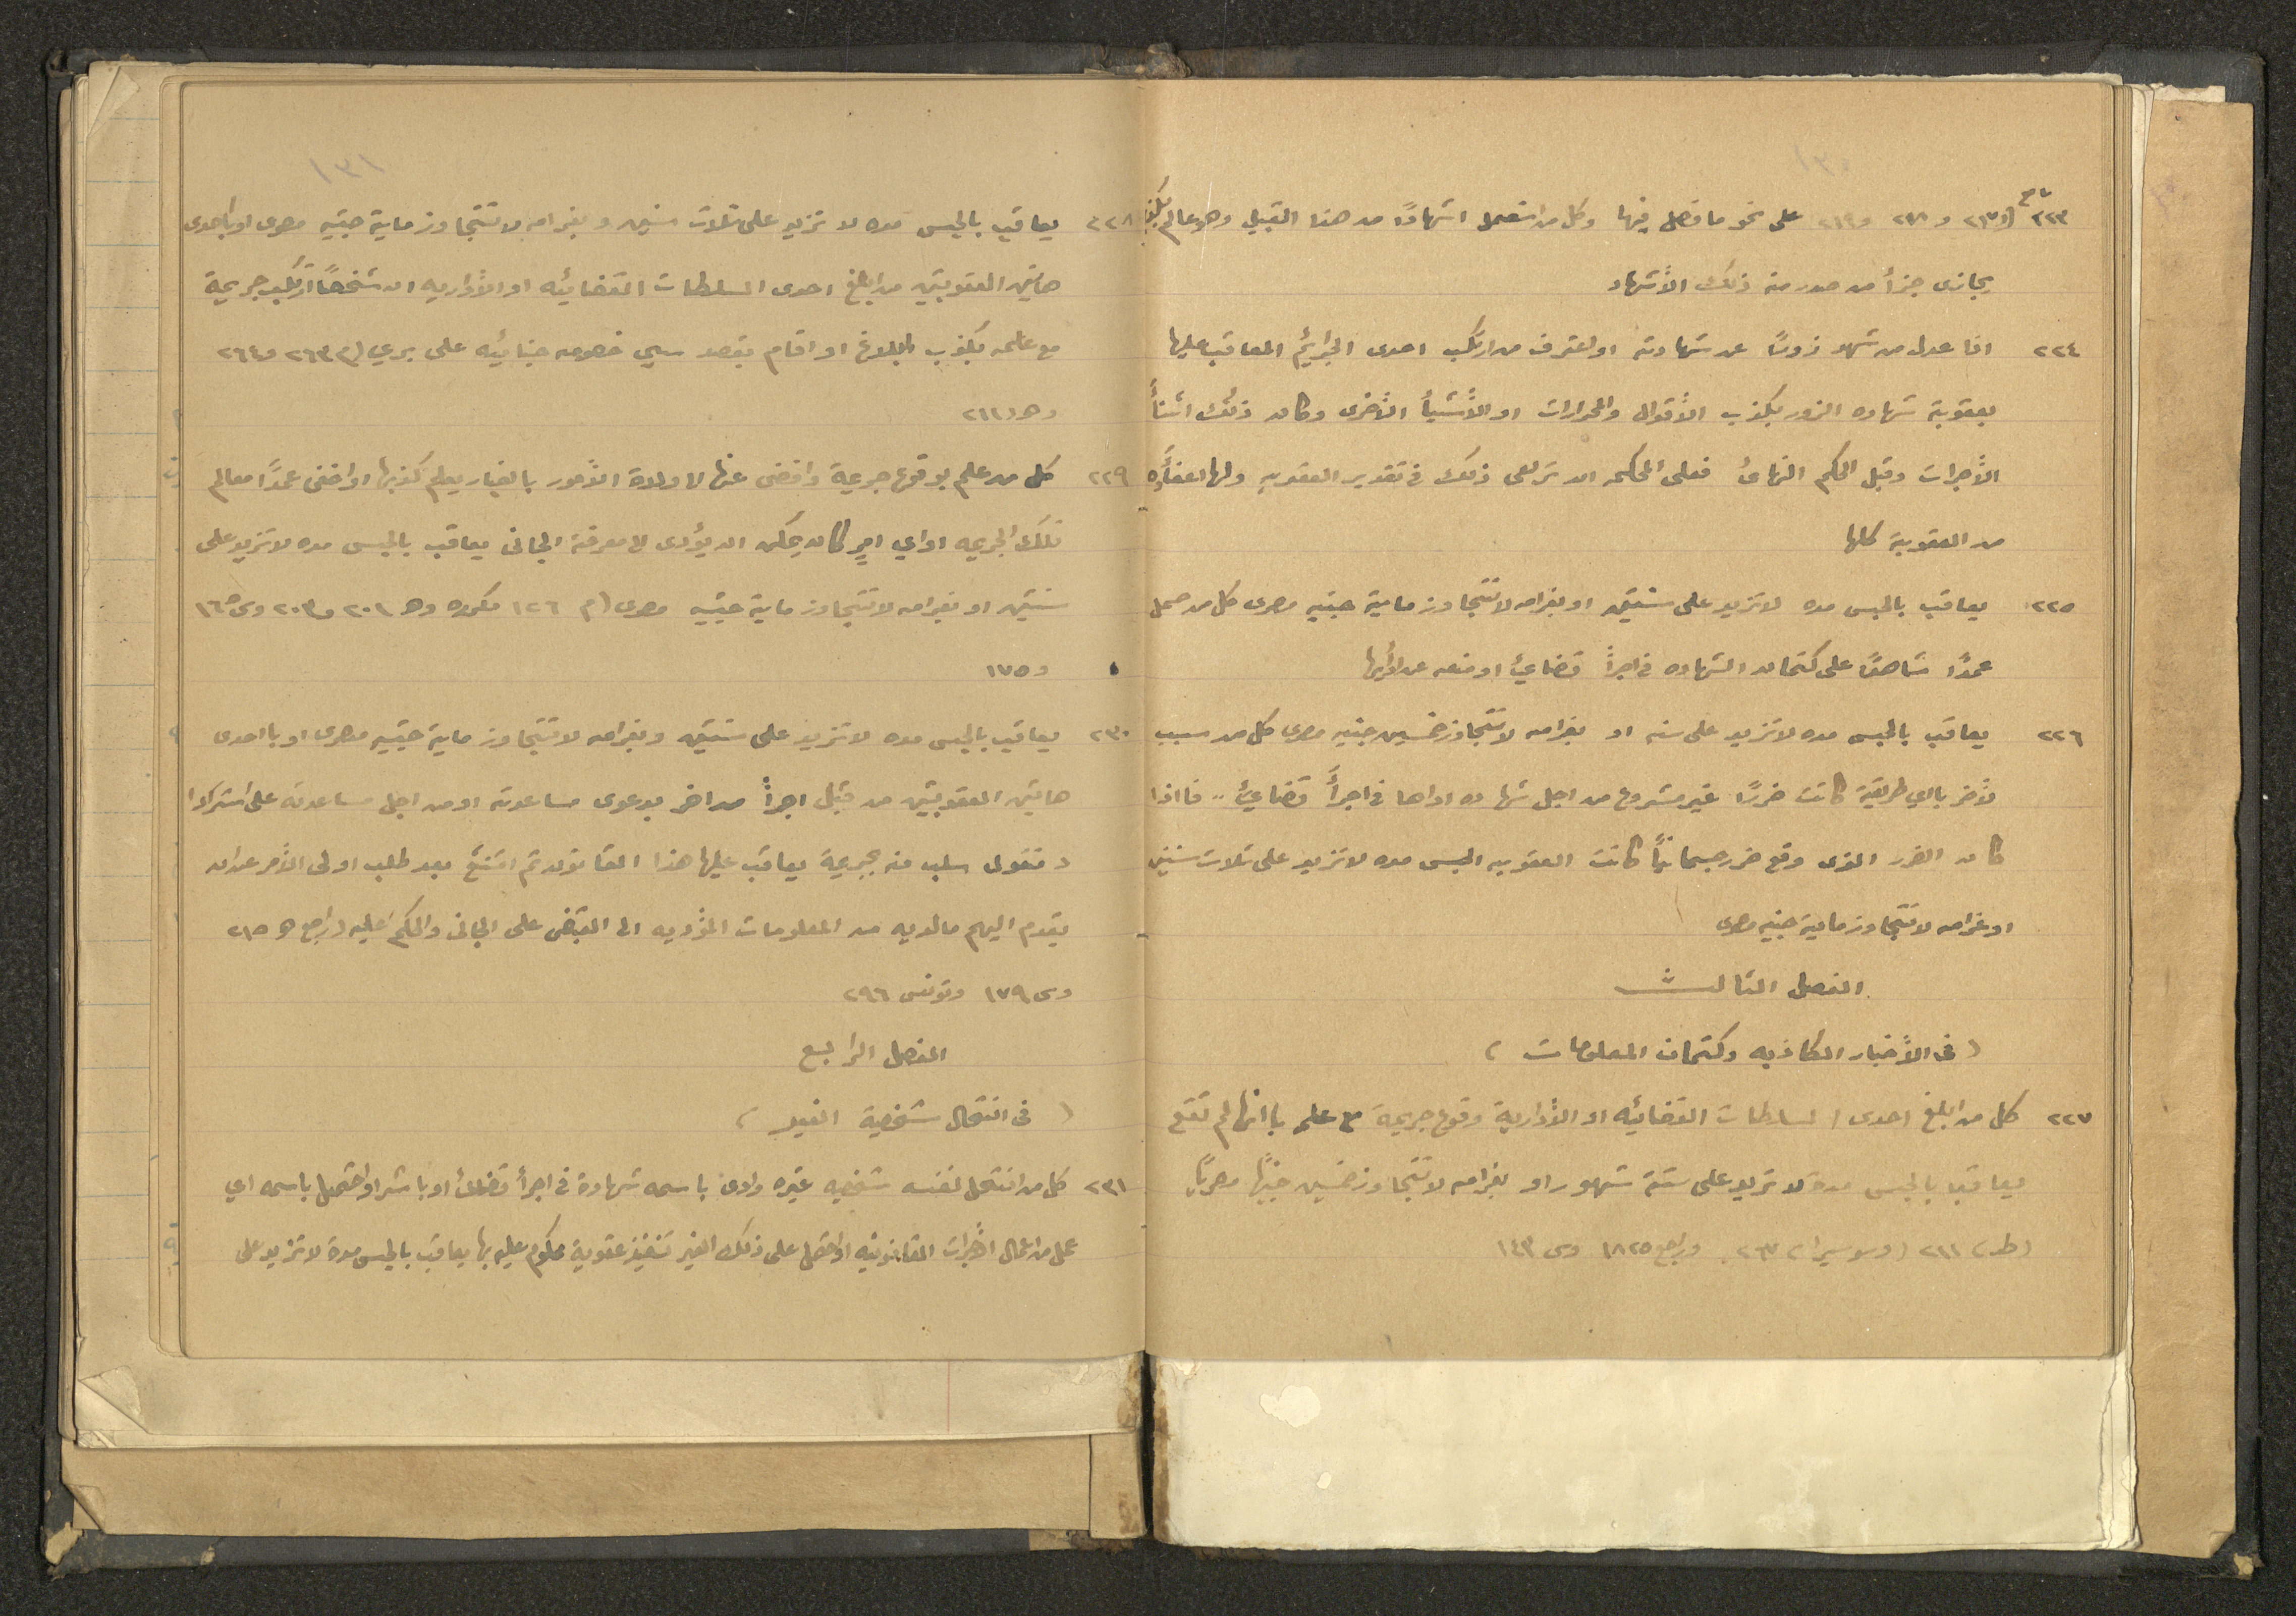 ١٣٠
٢٢٣ ٢١٧ و ٢١٨ و ٢١٩ على نحو ما فصل فيها وكل من استعمل اشهادًا من هذا القبيل وهو عالم بكذبه
يجازى جزأ من صدر منه ذلك الأشهاد
٢٢٤ اذا عدل من شهد زورًا عن شهادته او اعترف من ارتكب احدى الجرائم المعاقب عليها
بعقوبة شهاده الزور بكذب الأقوال والمحرارات او الأشيأ الأخرى وكان ذلك اثنأ
الأجرات وقبل الحكم النهائ فعلى المحكمه ان تراعى ذلك فى تقدير العقوبه ولها اعفأه
من العقوبة كلها
٢٢٥ يعاقب بالحبس مده لا تزيد على سنتين او بغرامه لا تتجاوز ماية جنيه مصرى كل من حمل
عمدًا شاهدًا على كتمان الشهاده فى اجرأ قضائئ او منعه عن ادأيها
٢٢٦ يعاقب بالحبس مده لا تزيد على سنه او بغرامه لا تتجاوز خمسين جنيه مصرى كل من سبب
لأخر بااي طريقة كانت ضررًا غير مشروع من اجل شهاده اداها فى اجرأ قضائئ .. فااذا
كان الضرر الذى وقع ضرر جسمانيًا كانت العقوبه الحبس مده لا تزيد على ثلاث سنين
او غرامه لا تتجاوز ماية جنيه مصرى
الفصل الثالث
( فى الأخبار الكاذبه وكتمان المعلومات )
٢٢٧ كل من ابلغ احدى السلطات القضائيه او الأدارية وقوع جريمة مع علمه باانها لم تقع
يعاقب بالحبس مدة لا تزيد على ستة شهور او بغرامه لا تتجاوز خمسين جنيهًا مصريًا
٢١١ (وسويسرا ٢٦٣ وراجع ١٨٢٥ وى ١٤٣
١٣١
٢٢٨ يعاقب بالحبس مده لا تزيد على ثلاث سنين وبغرامه لا تتجاوز ماية جنيه مصرى او باحدى
هاتين العقوبتين من ابلغ احدى السلطات القضائيه او الأداريه ان شخصًا ارتكب جريمة
مع علمه بكذب ابلاغه او اقام بقصد سيى خصومه جنائيه على برى (م ٢٦٣ و ٢٦٤
وهـ ٢١١
٢٢٩ كل من علم بوقوع جريمة وافضى عنها لا ولاة الأمور بااخبار يعلم كذبها او اخفى عمدًا معالم
تلك الجريمه او اي امر كان يمكن ان يؤدى الى معرفة الجانى يعاقب بالحبس مده لا تزيد على
سنتين او بغرامه لا تتجاوز ماية جنيه مصرى (م ١٢٦ مكرره وهـ ٢٠١ و ٢٠٣ وى ١٦٨
و ١٧٥
٢٣٠ يعاقب بالحبس مده لا تزيد على سنتين وبغرامه لا تتجاوز ماية جنيه مصرى او بااحدى
هاتين العقوبتين من قبل اجرأ من اخر بدعوى مساعدته او من اجل مساعدته على استرداد
منقول سلب منه بجريمة يعاقب عليها هذا القانون ثم امتنع بعد طلب اولى الأمر عن ان
يقدم اليهم مالديه من المعلومات المؤديه الى القبض على الجانى والحكم عليه (راجع هـ ٢١٥
وى ١٧٩ وتونس ٢٩٦
الفصل الرابع
( فى انتحال شخصية الغير )
٢٣١ كل من انتحل لنفسه شخصيه غيره وادى باسمه شهادة فى اجرأ قضائئ او باشر او احتمل باسمه اي
عمل من اعمال اجرات القانونيه او احتمل على ذلك الغير تنفيذ عقوبة محكوم عليه بها يعاقب بالحبس مدة لا تزيد على